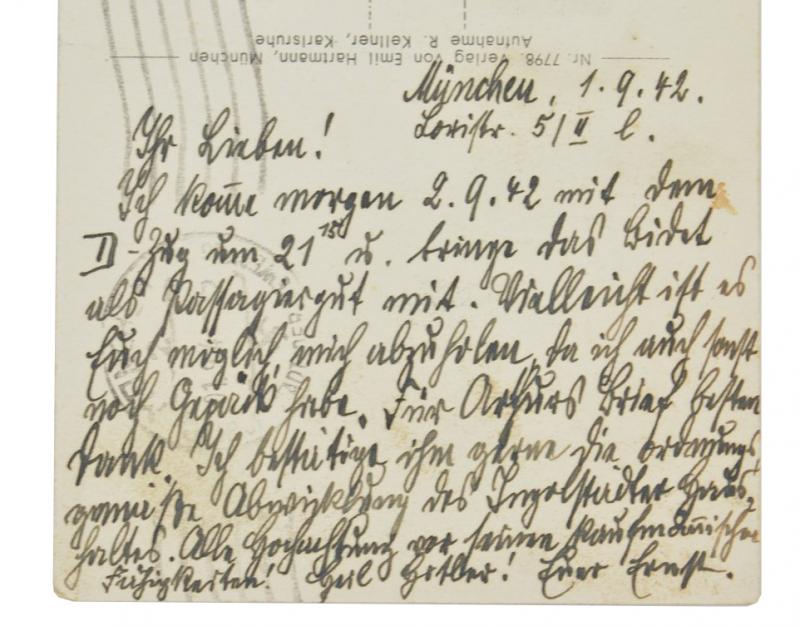 Nr. 7798. Verlag von Emil Hartmann, München
Aufnahme R. Kellner, Karlsruhe
München, 1.9.42.
Loristr. 5/II l.
Ihr Lieben!
Ich komme morgen 2.9.42 mit dem
D-Zug um 21 15 u. bringe das Bidet
als Passagiergut mit. Vielleicht ist es
Euch möglich, mich abzuholen, da ich auch sonst
noch Gepäck habe. Für Arthurs Brief besten
Dank. Ich bestätige ihm gerne die ordnungs-
gemäße Abwicklung des Ingolstädter Haus-
haltes. Alle Hochachtung vor seinen kaufmännischen
Fähigkeiten! Heil Hitler! Euer Ernst.